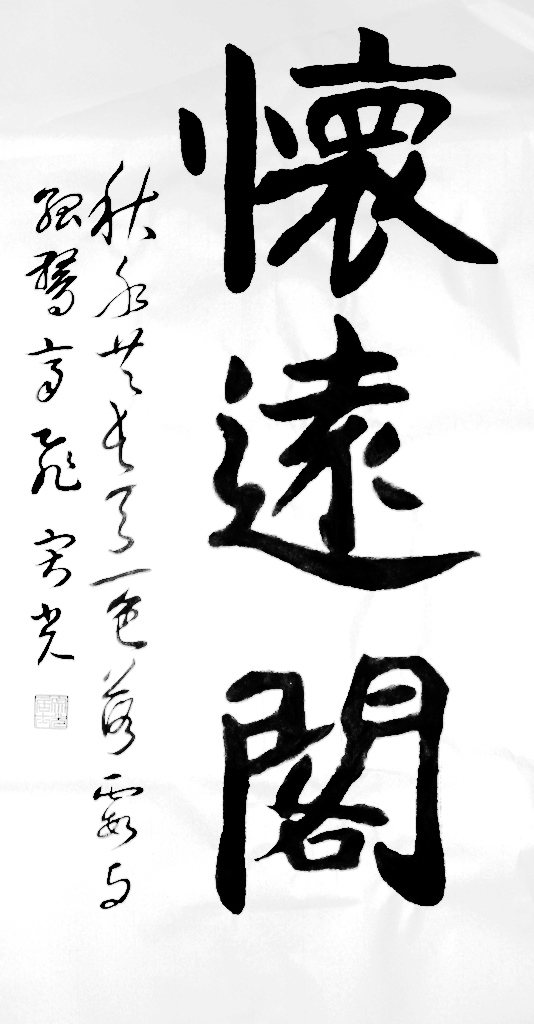 懷遠閣
秋水共長天一色落霞与
孤鶩高飛 光